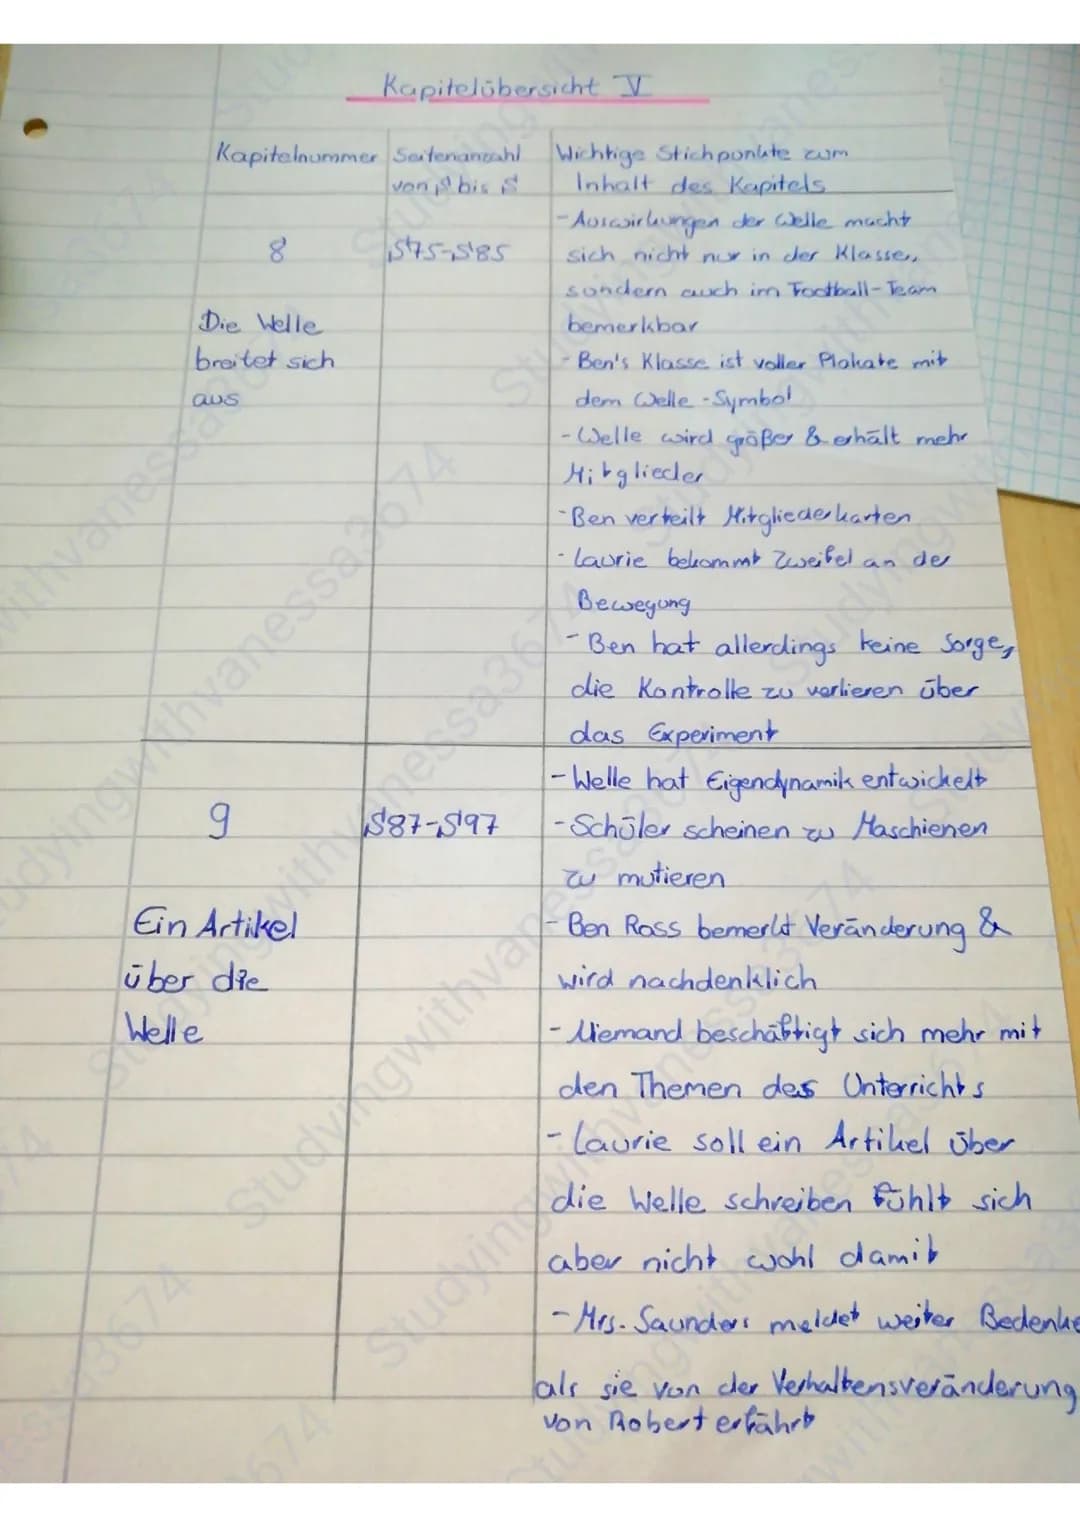 Kapitelübersicht V
Kapitelnummer
Seitenanzahl
von S bis S
Wichtige Stichpunkte zum
Inhalt des Kapitels
8
Die Welle
breitet sich
aus
S75-S85
- Auswirkungen der Welle macht
sich nicht nur in der Klasse,
sondern auch im Football-Team
bemerkbar
- Ben's Klasse ist voller Plakate mit
dem Welle-Symbol
- Welle wird größer & erhält mehr
Mitglieder
- Ben verteilt Mitgliederkarten
- Laurie bekommt Zweifel an der
Bewegung
- Ben hat allerdings keine Sorge,
die Kontrolle zu verlieren über
das Experiment
9
Ein Artikel
über die
Welle
S87-S97
- Welle hat Eigendynamik entwickelt
- Schüler scheinen zu Maschienen
zu mutieren
- Ben Ross bemerkt Veränderung &
wird nachdenklich
- Niemand beschäftigt sich mehr mit
den Themen des Unterrichts
- Laurie soll ein Artikel über
die Welle schreiben fühlt sich
aber nicht wohl damit
- Mrs. Saunders meldet weiter Bedenke
als sie von der Verhaltensveränderung
von Robert erfährt
Studyingwithvanessa3674